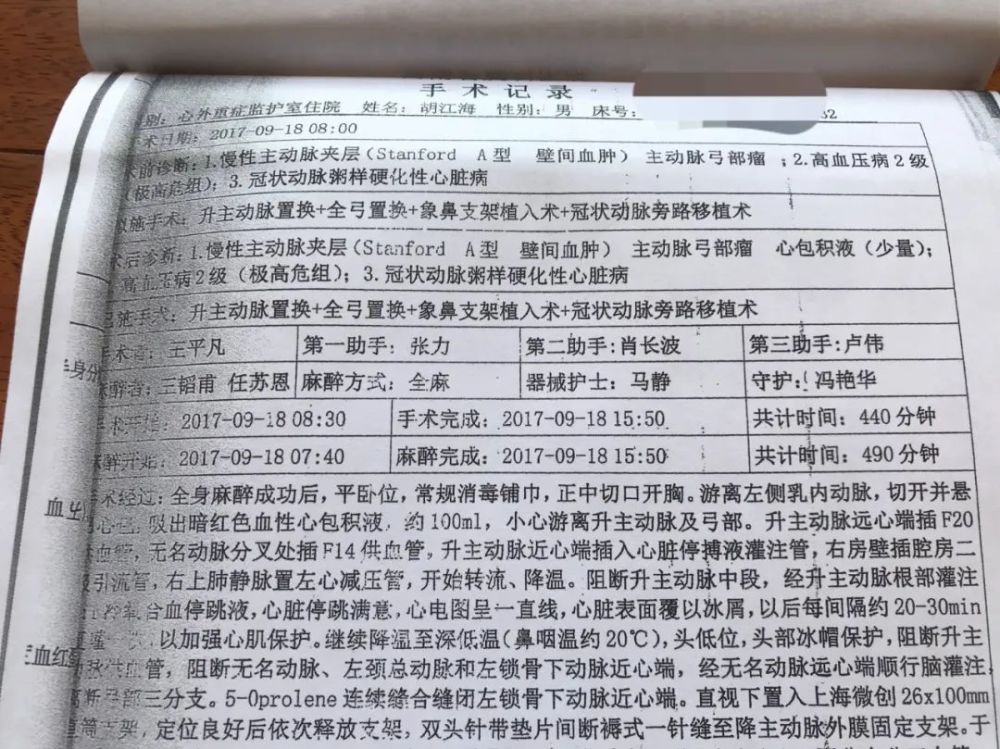 手术记录
别: 心外重症监护室住院 姓名: 胡江海 性别: 男 床号: 32
术日期: 2017-09-18 08:00
术前诊断: 1.慢性主动脉夹层(Stanford A型 壁间血肿) 主动脉弓部瘤 ;2.高血压病2级
(极高危组); 3.冠状动脉粥样硬化性心脏病
拟施手术: 升主动脉置换+全弓置换+象鼻支架植入术+冠状动脉旁路移植术
术后诊断: 1.慢性主动脉夹层(Stanford A型 壁间血肿) 主动脉弓部瘤 心包积液(少量);
高血压病2级(极高危组); 3.冠状动脉粥样硬化性心脏病
已施手术: 升主动脉置换+全弓置换+象鼻支架植入术+冠状动脉旁路移植术
手术者: 王平凡 第一助手: 张力 第二助手:肖长波 第三助手:卢伟
麻醉者: 王韬甫 任苏恩 麻醉方式: 全麻 器械护士: 马静 守护: 冯艳华
手术开始: 2017-09-18 08:30 手术完成: 2017-09-18 15:50 共计时间: 440分钟
麻醉开始: 2017-09-18 07:40 麻醉完成: 2017-09-18 15:50 共计时间: 490分钟
手术经过: 全身麻醉成功后, 平卧位, 常规消毒铺巾, 正中切口开胸。游离左侧乳内动脉, 切开并悬
心包, 吸出暗红色血性心包积液, 约100ml, 小心游离升主动脉及弓部。升主动脉远心端插F20
血管, 无名动脉分叉处插F14供血管, 升主动脉近心端插入心脏停搏液灌注管, 右房壁插腔房二
引流管, 右上肺静脉置左心减压管, 开始转流、降温。阻断升主动脉中段, 经升主动脉根部灌注
氧合血停跳液, 心脏停跳满意, 心电图呈一直线, 心脏表面覆以冰屑, 以后每间隔约20-30min
以加强心肌保护。继续降温至深低温(鼻咽温约20℃), 头低位, 头部冰帽保护, 阻断升主
供血管, 阻断无名动脉、左颈总动脉和左锁骨下动脉近心端, 经无名动脉远心端顺行脑灌注,
部三分支。5-0prolene连续缝合缝闭左锁骨下动脉近心端。直视下置入上海微创26x100mm
支架, 定位良好后依次释放支架, 双头针带垫片间断褥式一针缝至降主动脉外膜固定支架。于